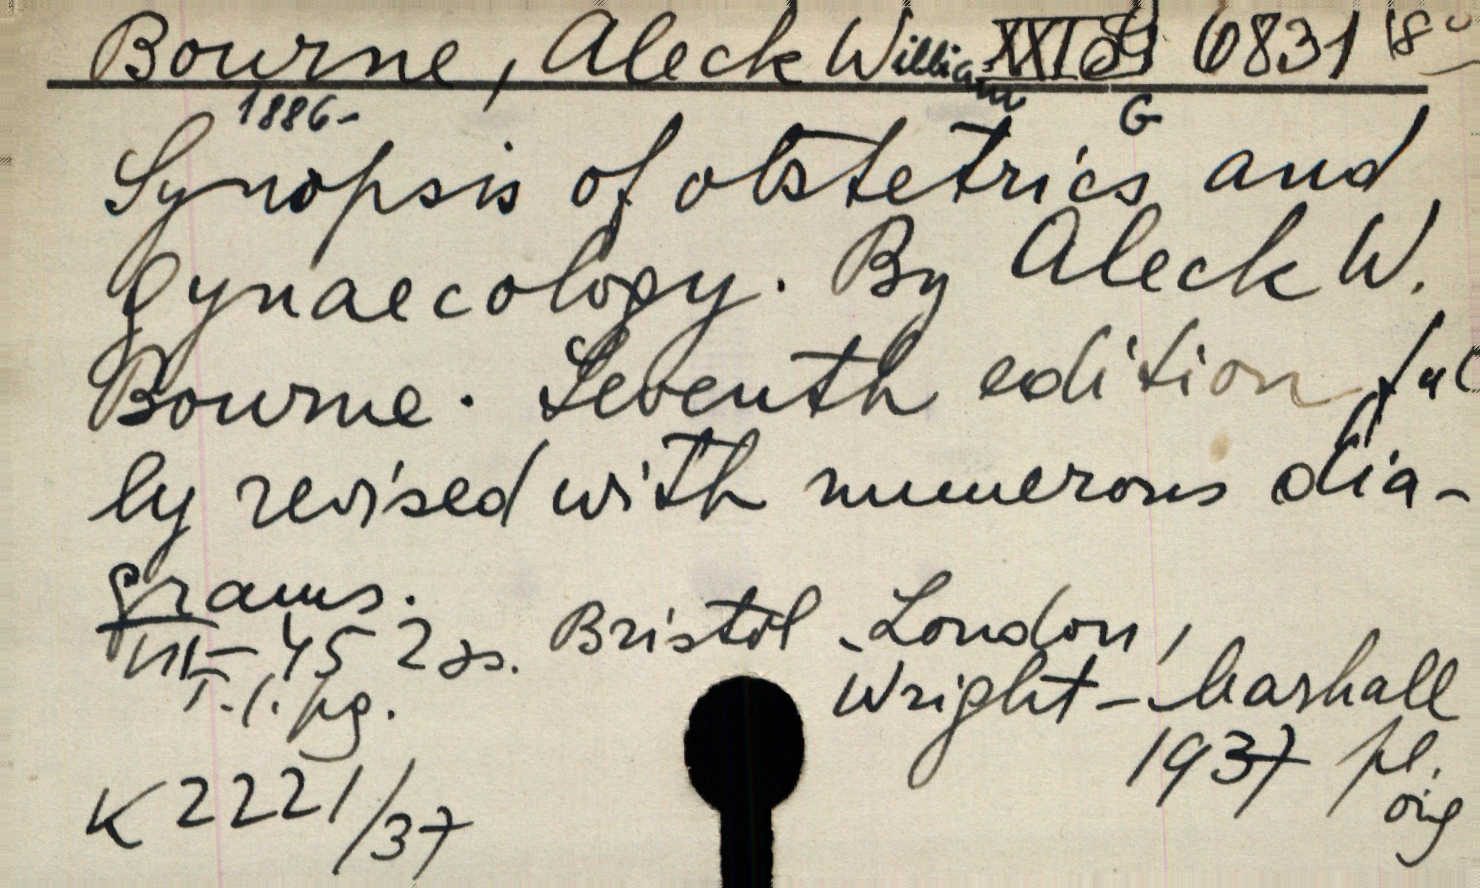 Bourne, Aleck William XXI 6831
1886- G
Synopsis of obstetrics and
gynaecology. By Aleck W.
Bourne. Seventh edition ful
ly revised with numerous dia-
grams.
VIII-452 Bristol - London,
Wright - Marshall
1937
K 2221/37